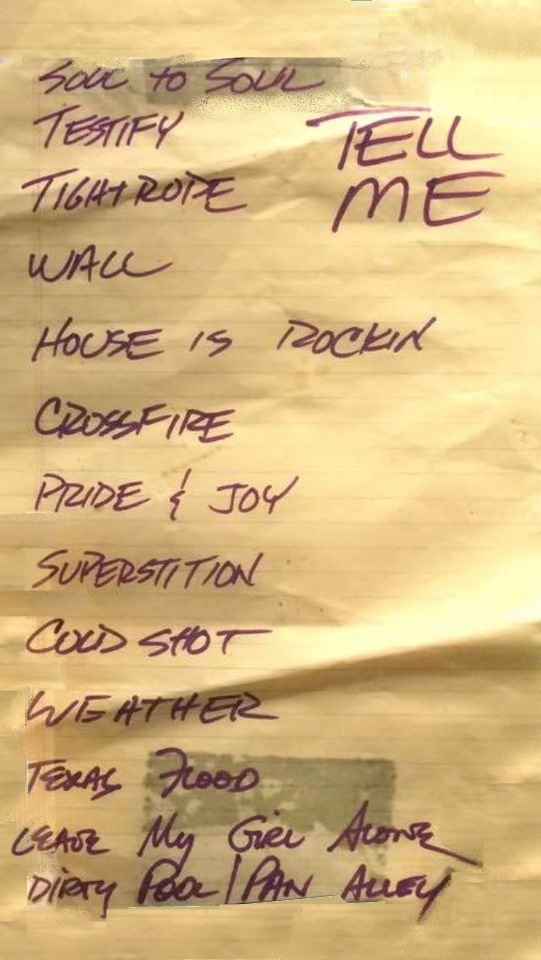 SOUL TO SOUL
TESTIFY
TIGHTROPE
TELL
ME
WALL
HOUSE IS ROCKIN
CROSSFIRE
PRIDE & JOY
SUPERSTITION
COLD SHOT
WEATHER
TEXAS FLOOD
LEAVE My GIRL ALONE
DIRTY POOL/PAN ALLEY